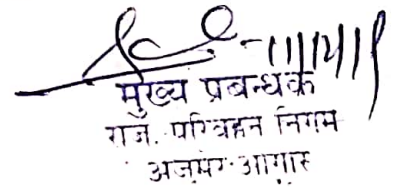 मुख्य प्रबन्धक
राज. परिवहन निगम
अजमेर आगार